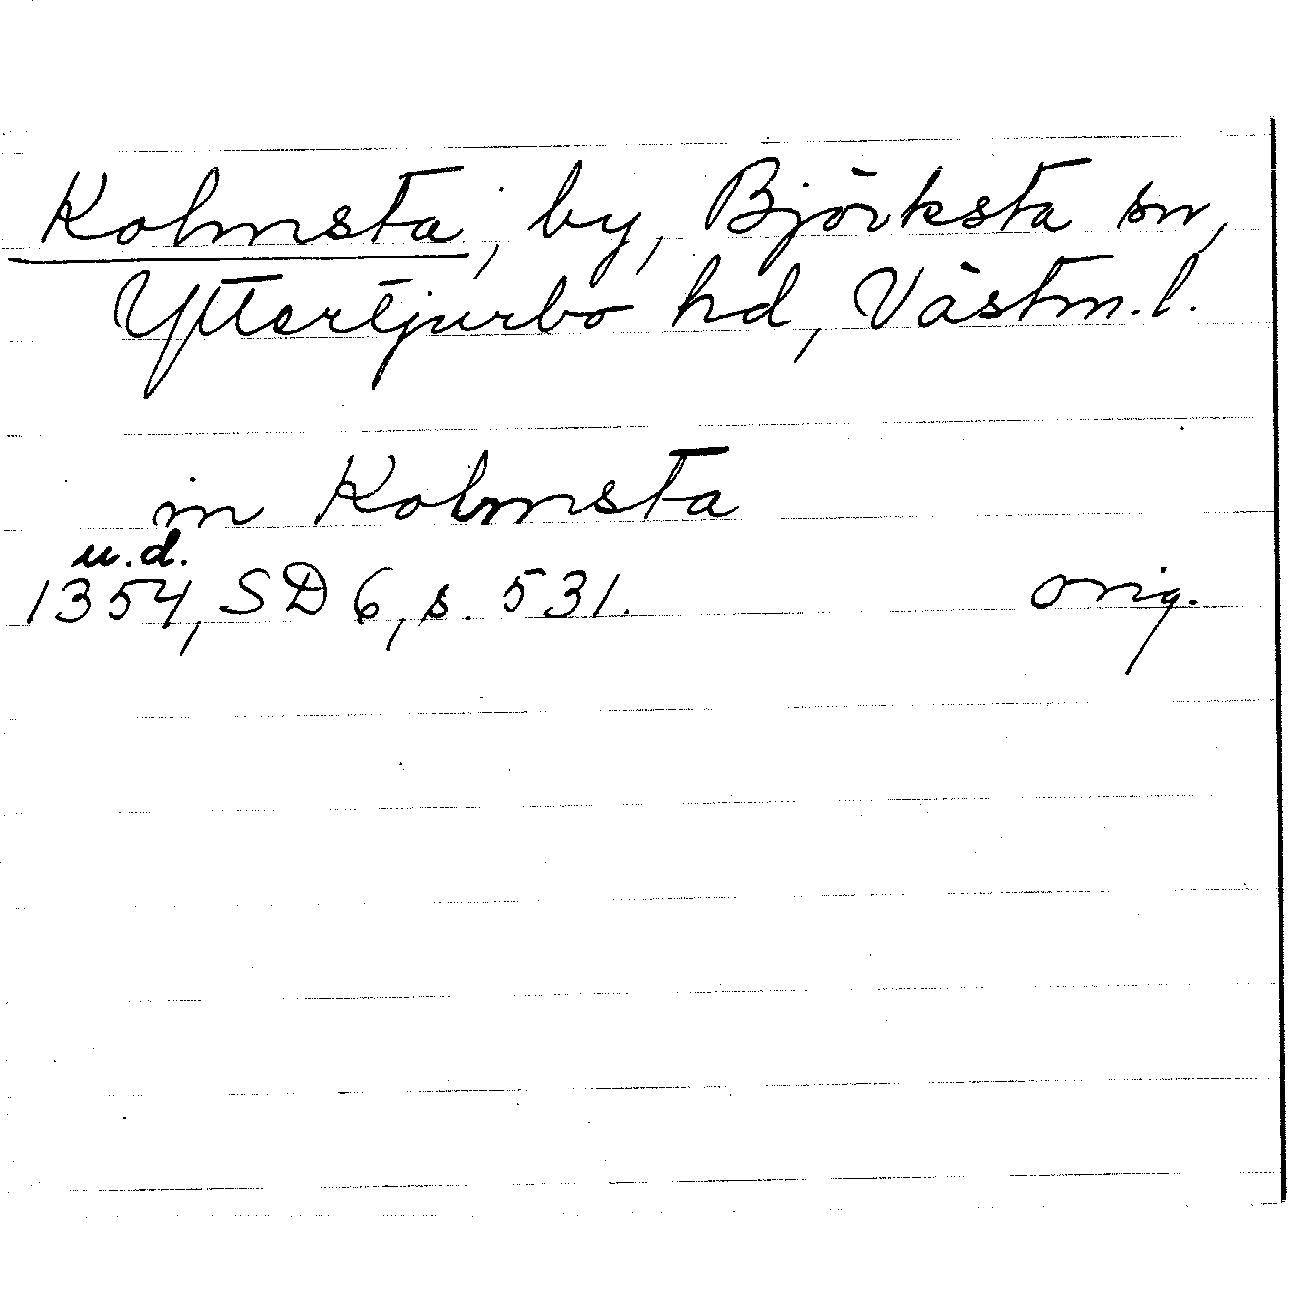 Kolmsta, by, Björksta sn,
Yttertjurbo hd, Västm.l.
in Kolmsta
u.d.
1354, SD 6, s. 531. orig.